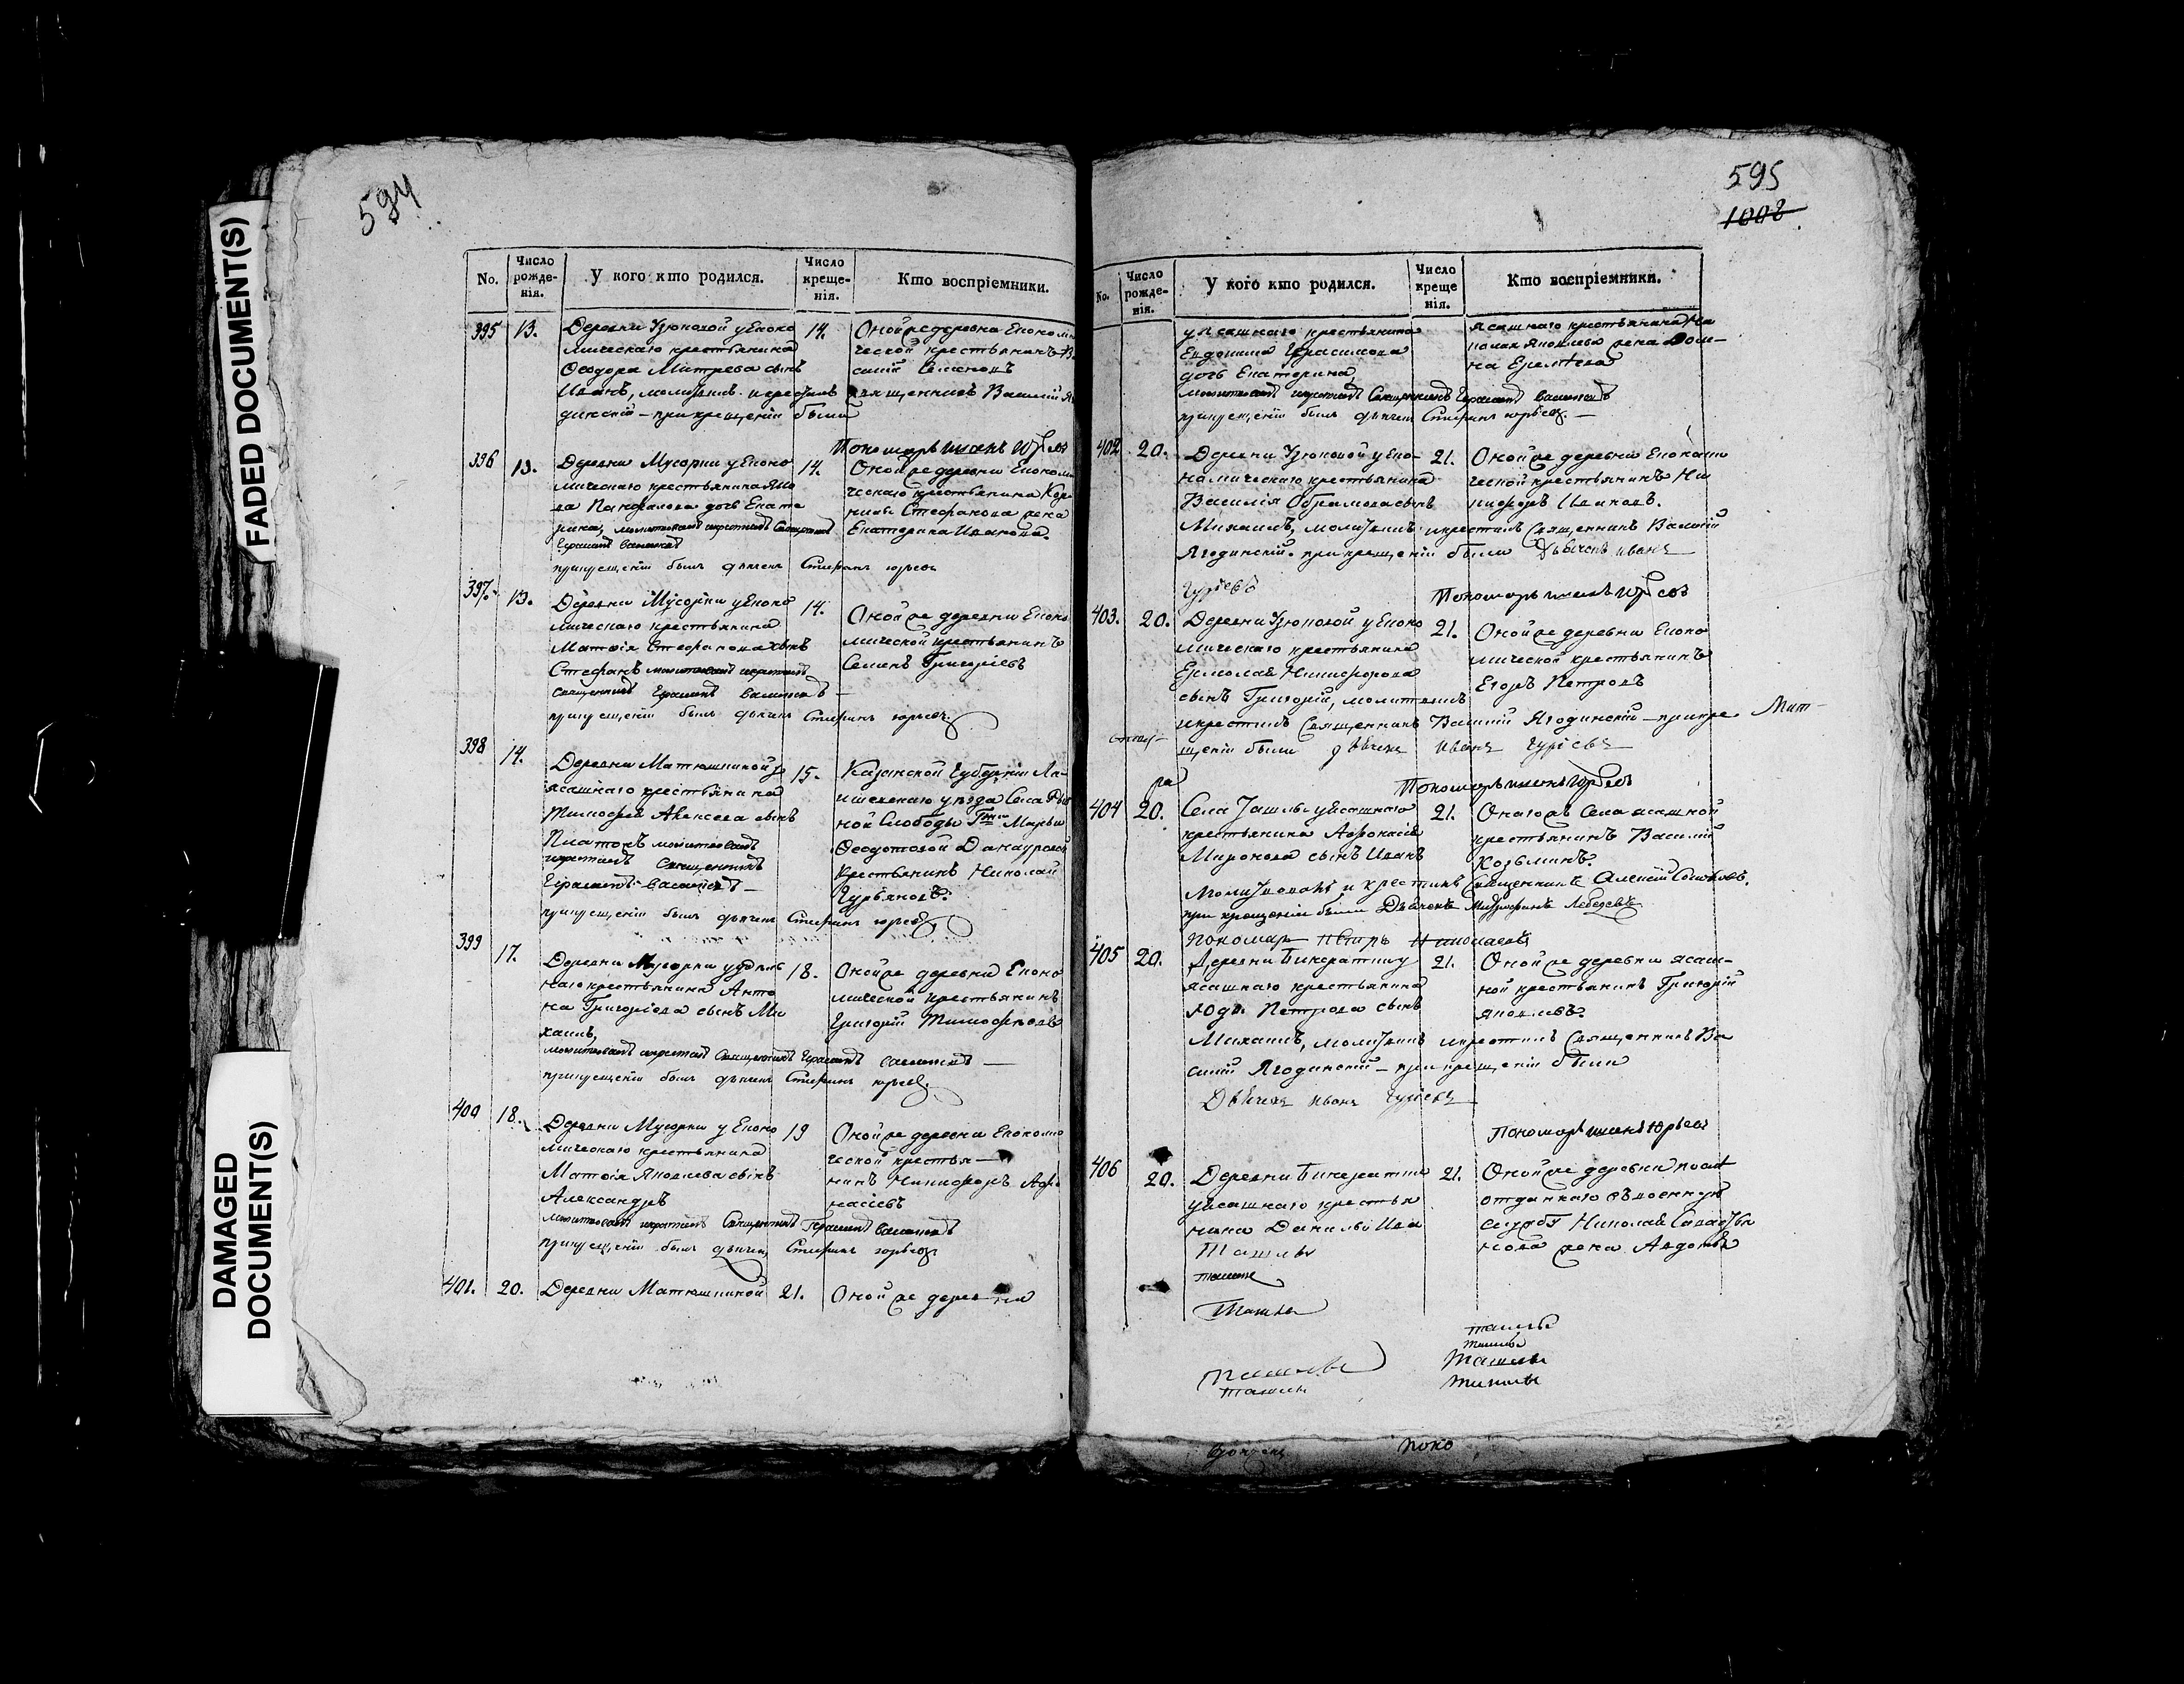 FADED DOCUMENT(S)
DAMAGED
DOCUMENT(S)
594
No.
Число рожде-нія.
У кого кто родился.
Число креще-нія.
Кто воспріемники.
395 13. Деревни Узюковой у Еконо 14. Оной же деревни Економи
мическаго крестьянина ческой крестьянинъ Ва
Ѳеодора Митрева сынъ силій Семеновъ
Иванъ, молитвилъ и крестилъ священникъ Василій Яго
динскій – при крещеніи были
Пономарь Юрьев
396 13. Деревни Мусорки у Еконо 14. Оной же деревни Економи
мическаго крестьянина Яко
ва Панфилова дочь Екате ческаго крестьянина
рина, молитвовалъ и крестилъ Священникъ Стефанова жена
Герасимъ Васильевъ Екатерина Иванова.
при крещеніи былъ дьячекъ Стефанъ Юрьевъ
397. 13. Деревни Мусорки у Еконо 14. Оной же деревни Еконо
мическаго крестьянина мической крестьянинъ
Матвія Стефанова сынъ Семенъ Григорьевъ
Стефанъ молитвовалъ и крестилъ
священникъ Герасимъ Васильевъ –
при крещеніи былъ дьячекъ Стефанъ Юрьевъ.
398 14. Деревни Матюшкиной у 15. Казанской Губерніи Ла-
ясашнаго крестьянина ишевскаго уезда Села Рыб
Тимофея Алексеева сынъ ной Слободы Гжи Марьи
Платонъ молитвовалъ Ѳеодотовой
и крестилъ Священникъ Крестьянинъ Николай
Герасимъ Васильевъ – Гурьяновъ.
при крещеніи былъ дьячекъ Стефанъ Юрьевъ
399 17. Деревни Мусорки у удель 18. Оной же деревни Еконо
наго крестьянина Анто мической крестьянинъ
на Григорьева сынъ Ми Григорій Тимофеевъ
хаилъ,
молитвовалъ и крестилъ Священникъ Герасимъ Васильевъ –
при крещеніи былъ дьячекъ Стефанъ Юрьевъ.
400 18. Деревни Мусорки у Еконо 19 Оной же деревни Економи
мическаго крестьянина ческой крестья –
Матвія Яковлева сынъ нинъ Никифоръ Афа
Александръ насіевъ
молитвовалъ и крестилъ Священникъ Герасимъ Васильевъ
при крещеніи былъ дьячекъ Стефанъ Юрьевъ
401. 20. Деревни Матюшкиной 21. Оной же деревни
595
1008
No.
Число рожде-нія.
У кого кто родился.
Число креще нія.
Кто воспріемники.
у ясашнаго крестьянина ясашнаго крестьянина
Евдокима Герасимова Яковлева жена Дом–
дочь Екатерина, на Еремѣева
молитвовалъ и крестилъ Священникъ Герасимъ Васильевъ
при крещеніи былъ дьячекъ Стефанъ Юрьевъ –
402 20. Деревни Узюковой у Еко– 21. Оной же деревни Економи
номическаго крестьянина ческой крестьянинъ Ни
Василія Обрамова сынъ кифоръ Ивановъ.
Михаилъ, молитвилъ и крестилъ Священникъ Василій
Ягодинскій. при крещеніи были Дьячекъ Иванъ
Гурьевъ
Пономарь Юрьев
403. 20. Деревни Узюковой у Еконо 21. Оной же деревни Еконо
мическаго крестьянина мической крестьянинъ
Ермолая Никифорова Егоръ Петровъ
сынъ Григорій, молитвилъ
и крестилъ Священникъ Василій Ягодинскій – при кре Мит –
щеніи были дьячекъ Иванъ Гурьевъ
ра
Пономарь Юрьев
404 20. Села Ташлы у ясашнаго 21. Онагожъ Села ясашной
крестьянина Афонасія крестьянинъ Василій
Миронова сынъ Иванъ Козьминъ.
Молитвовалъ и крестилъ Священникъ Алексій
при крещеніи были Дьячекъ Митрофанъ Лебедевъ
пономарь Петръ Николаевъ
405 20. Деревни 21. Оной же деревни ясаш–
ясашнаго крестьянина ной крестьянинъ Григорій
Петрова сынъ Яковлевъ.
Михаилъ, молитвилъ и крестилъ Священникъ Ва
силій Ягодинскій – при крещеніи были
Дьячекъ Иванъ Гурьевъ
Пономарь Юрьев
406 20. Деревни 21. Оной же деревни
у ясашнаго крестья отданнаго въ военную
нина Данилы Ива службу Николая
Ташлы нова жена Авдотья
ташлы
Ташлы
ташлы
ташлы
Ташлы
ташлы
ташлы
ташлы
поко